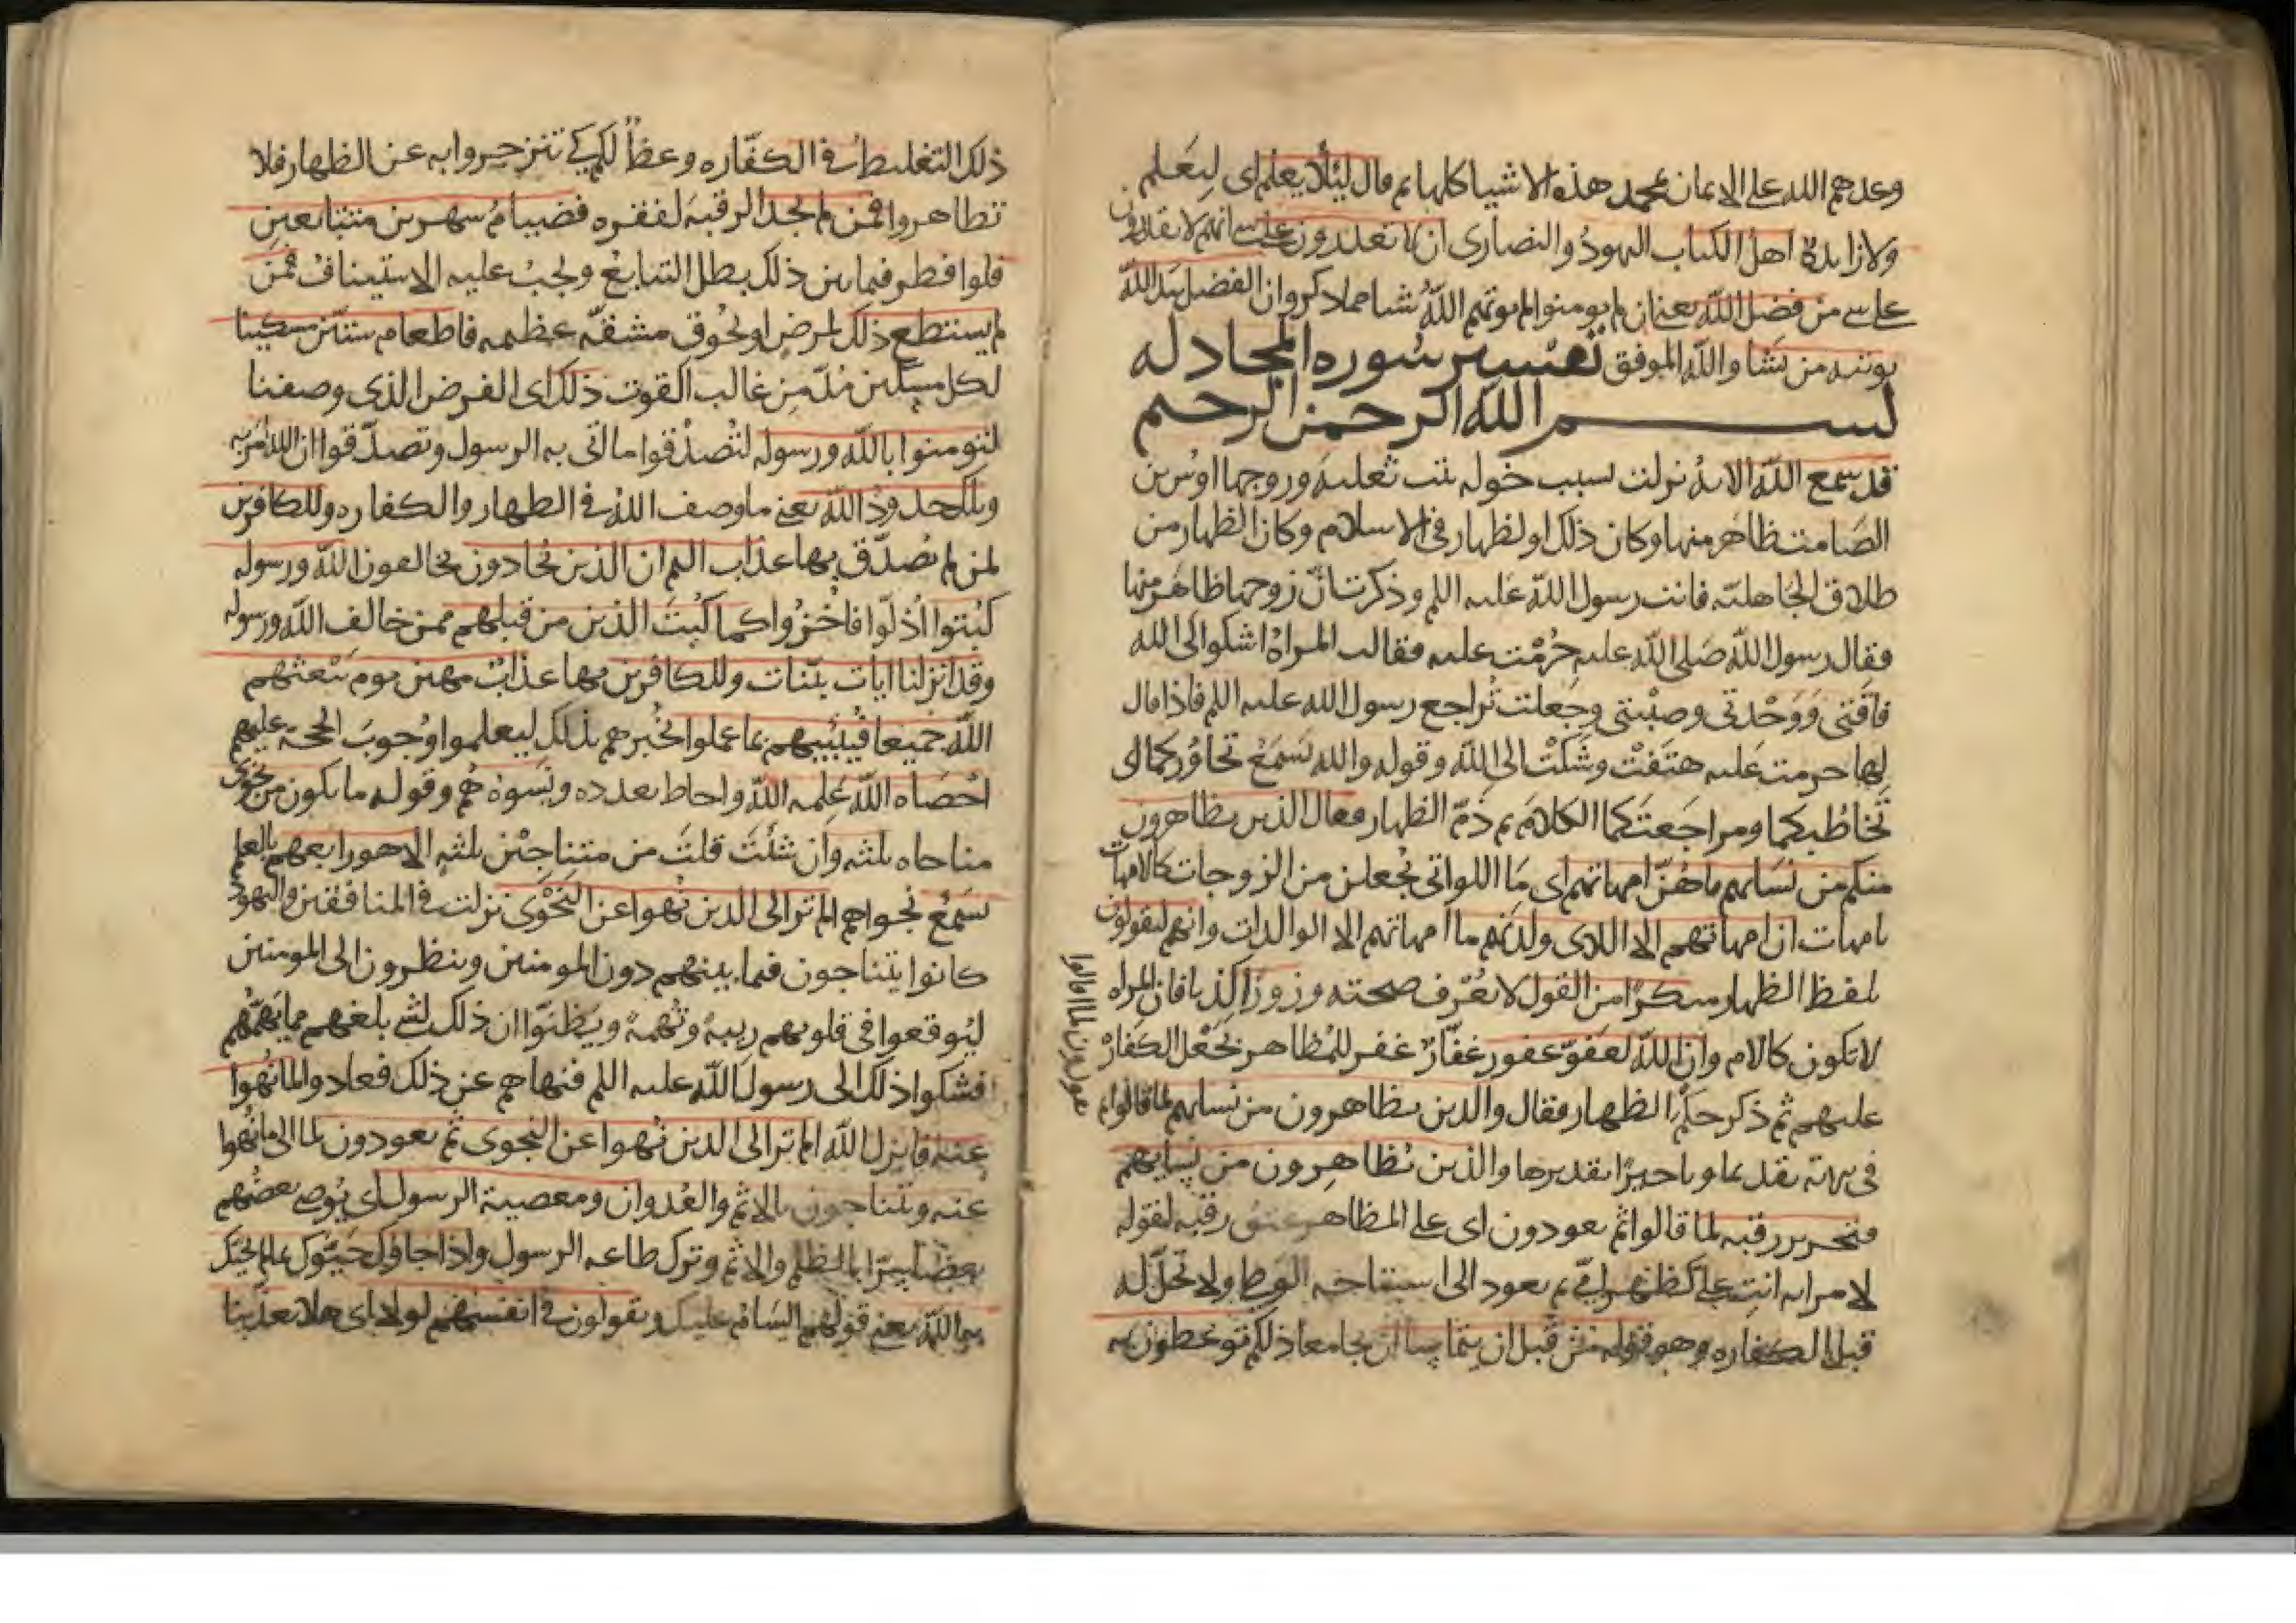 وعدهم الله على الايمان بمحمد هذه الاشيا كلها ثم قال ليلا يعلم اى ليعلم
ولا زايدة اهل الكتاب اليهود والنصارى ان لا يقدرون على شى انهم لا يقدرون
على شى من فضل الله يعنى ان لم يومنوا لم يوتهم الله شيا مما ذكر وان الفضل بيد الله
يوتيه من يشا والله الموفق تفسير سوره المجادله
بسم الله الرحمن الرحيم
قد سمع الله الايه نزلت بسبب خوله بنت ثعلبه وزوجها اوس بن
الصامت ظاهر منها وكان ذلك اول ظهار فى الاسلام وكان الظهار من
طلاق الجاهليه فاتت رسول الله عليه السلم وذكرت ان زوجها ظاهر منها
فقال رسول الله صلى الله عليه حرمت عليه فقالت المراه اشكوا الى الله
فاقتى ووحدتى وصبيتى وجعلت تراجع رسول الله عليه السلم فاذا قال
لها حرمت عليه هتفت وشكت الى الله وقوله والله يسمع تحاوركما اى
تخاطبكما ومراجعتكما الكلام ثم ذم الظهار فقال الذين يظاهرون
منكم من نسايهم ما هن امهاتهم اى ما اللواتى يجعلن من الزوجات كالامهات
بامهات ان امهاتهم الا اللاى ولدنهم ما امهاتهم الا الوالدات وانهم ليقولون
بلفظ الظهار منكرا من القول لا يعرف صحته وزورا كذبا فان المراه
لا تكون كالام وان الله لعفو غفور غفار غفر للمظاهر بجعل الكفاره
عليهم ثم ذكر حكم الظهار فقال والذين يظاهرون من نسايهم لما قالوا
فى الايه تقديما وتاخيرا تقديرها والذين يظاهرون من نسايهم
فتحرير رقبه لما قالوا ثم يعودون اى على المظاهر عتق رقبه لقوله
لامراته انت على كظهر امى ثم يعود الى استباحه الوطى ولا تحل له
قبل الكفاره وهو قوله من قبل ان يتماسا ان يجامعا ذلكم توعظون به
ثم يعودون لما قالوا
ذلك التغليظ فى الكفاره وعظا لكم كى تنزجروا به عن الظهار فلا
تظاهروا فمن لم يجد الرقبه لفقره فصيام شهرين متتابعين
فلو افطر فيما بين ذلك بطل التتابع ويجب عليه الاستيناف فمن
لم يستطع ذلك لمرض او لحوق مشقه عظيمه فاطعام ستين مسكينا
لكل مسكين مد من غالب القوت ذلك اى الفرض الذى وصفنا
لتومنوا بالله ورسوله لتصدقوا ما اتى به الرسول وتصدقوا ان الله امر به
وتلك حدود الله يعنى ما وصف الله فى الظهار والكفاره وللكافرين
لمن لم يصدق بها عذاب اليم ان الذين يحادون يخالفون الله ورسوله
كبتوا اذلوا واخزوا كما كبت الذين من قبلهم ممن خالف الله ورسوله
وقد انزلنا ايات بينات وللكافرين بها عذاب مهين يوم يبعثهم
الله جميعا فينبيهم بما عملوا يخبرهم بذلك ليعلموا وجوب الحجه عليهم
احصاه الله علمه الله واحاط بعدده ونسوه هم وقوله ما يكون من نجوى
مناجاه ثلثه وان شيت قلت من متناجين ثلثه الا هو رابعهم بالعلم
يسمع نجواهم الم تر الى الذين نهوا عن النجوى نزلت فى المنافقين واليهود
كانوا يتناجون فيما بينهم دون المومنين وينظرون الى المومنين
ليوقعوا فى قلوبهم ريبة وتهمة ويظنوا ان ذلك لشى بلغهم مما يهمهم
فشكوا ذلك الى رسول الله عليه السلم فنهاهم عن ذلك فعادوا لما نهوا
عنه فانزل الله الم تر الى الذين نهوا عن النجوى ثم يعودون لما الى ما نهوا
عنه ويتناجون بالاثم والعدوان ومعصية الرسول اى يوصى بعضهم
بعضا سرا بالظلم والاثم وترك طاعه الرسول واذا جاوك حيوك بما لم يحيك
به الله يعنى قولهم السام عليك ويقولون فى انفسهم لولا اى هلا يعذبنا